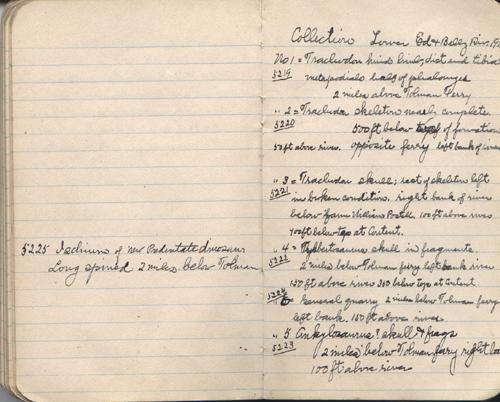 5225 Ischium of new Predentate dinosaur
Long spined 2 miles below Tolman
Collection Lower Ed & Belly Riv. 19
No 1 = Trachodon hind limb, distend tibia
5219 metapodials half of phalanges
2 miles above Tolman Ferry
" 2 = Trachodon skeleton nearly complete
5220 500 ft below top of formation
50 ft above river. opposite ferry left bank of river
" 3 = Trachodon skull; rest of skeleton left
5221 in broken condition. right bank of river
below farm William 100 ft above river
400 ft below top at Content.
" 4 = skull in fragments
5222 2 miles below Tolman ferry left bank river
150 ft above river 300 below top at Content.
5224 General quarry 2 miles below Tolman ferry
left bank. 150 ft above river
" 5 Ankylosaurus? skull & frags
5223 2 miles below Tolman ferry right
100 ft above river